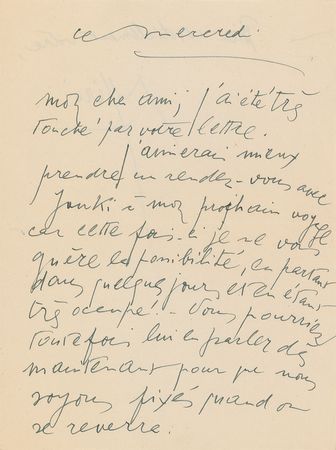 ce mercredi
mon cher ami, j'ai été très
touché par votre lettre.
j'aimerais mieux
prendre un rendez-vous avec
à mon prochain voyage
car cette fois-ci je ne vois
guère la possibilité, en partant
dans quelques jours et en étant
très occupé - Vous pourriez
toutefois lui en parler dès
maintenant pour que nous
soyons fixés quand on
se reverra.